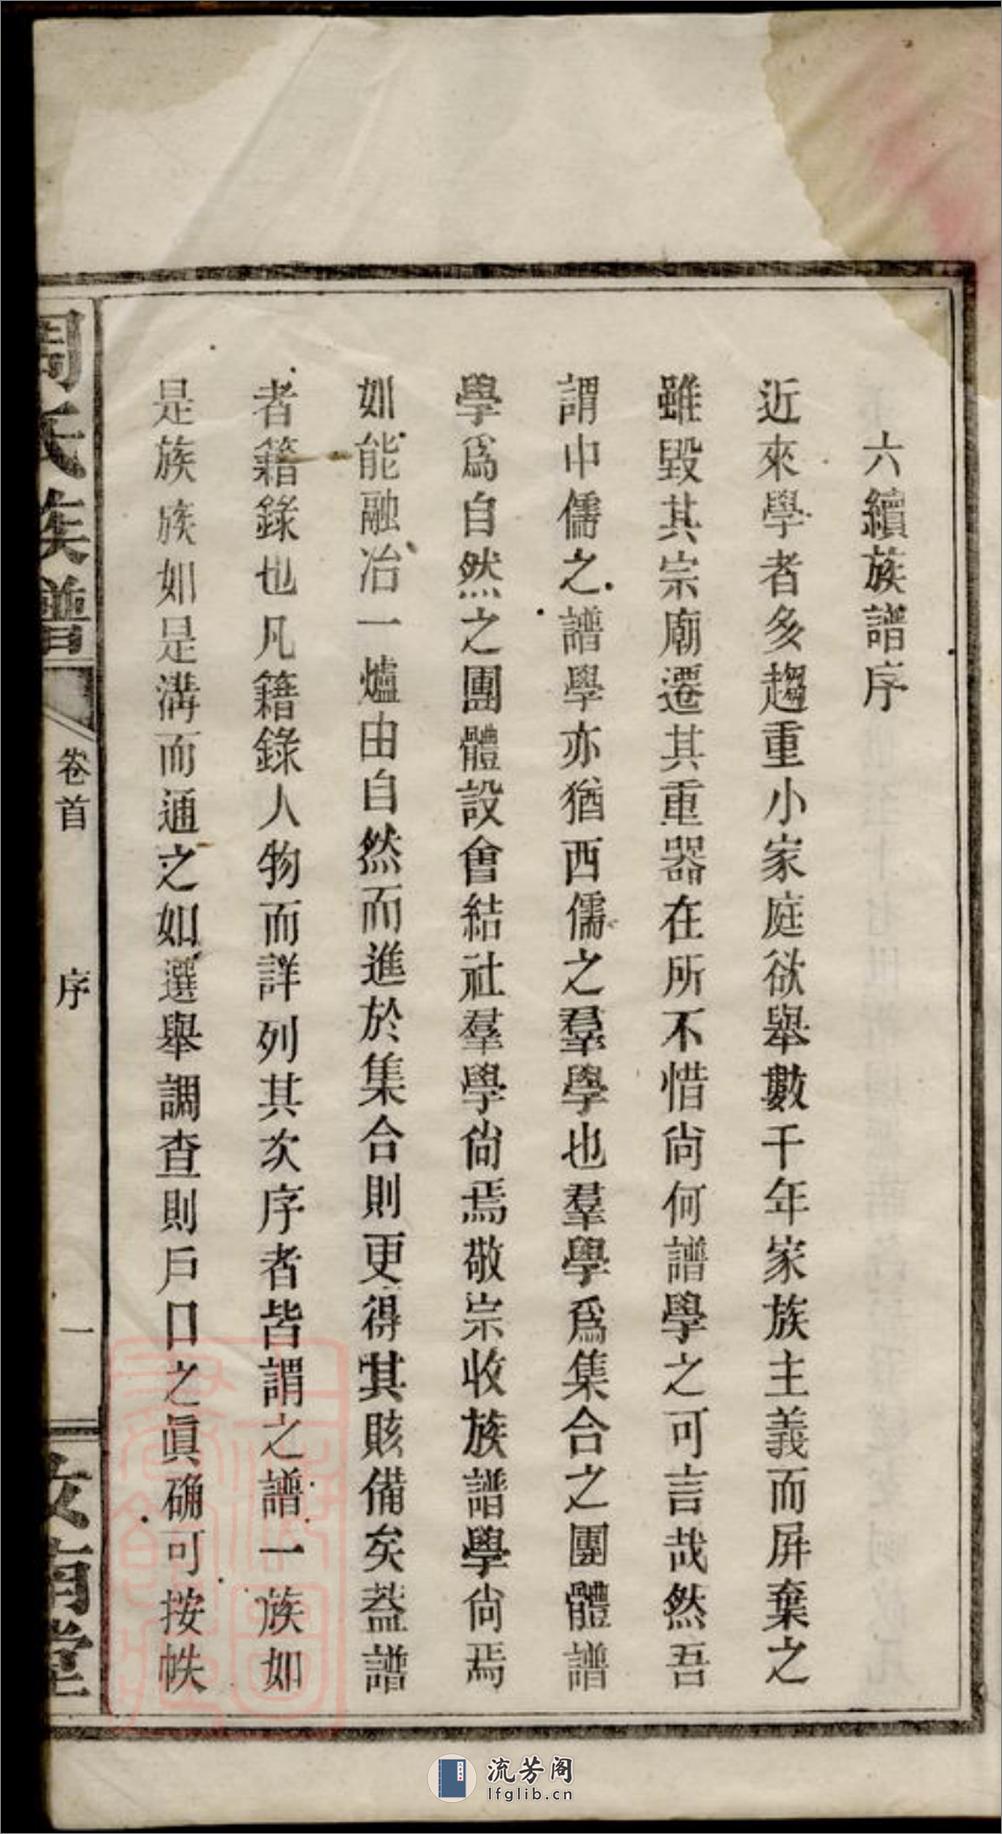 六續族譜序
近來學者多趨重小家庭欲舉數千年家族主義而屏棄之
雖毀其宗廟遷其重器在所不惜尙何譜學之可言哉然吾
謂中儒之譜學亦猶西儒之羣學也羣學爲集合之團體譜
學爲自然之團體設會結社羣學尙焉敬宗收族譜學尙焉
如能融冶一爐由自然而進於集合則更得其賅備矣葢譜
者籍錄也凡籍錄人物而詳列其次序者皆謂之譜一族如
是族族如是溝而通之如選舉調查則戶口之眞确可按帙
周氏族譜 卷首 序 一 汝南堂
流芳阁
lfglib.cn